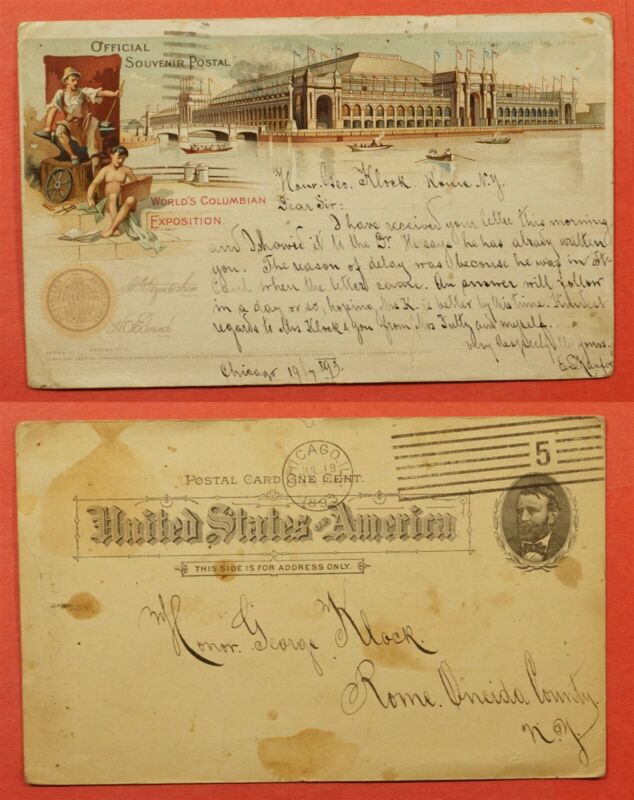 OFFICIAL
SOUVENIR POSTAL
MANUFACTURES AND LIBERAL ARTS
WORLD'S COLUMBIAN
EXPOSITION.
Honr. Geo. Klock. Rome N.Y.
Dear Sir:
I have received your letter this morning
and I showed it to the Dr. He says he has alrady written
you. The reason of delay was because he was in St-
Paul when the letter came. An answer will follow
in a day or so, hoping Mrs K. is better by this time. Kindest
regards to Mrs Klock & you from Mrs and myself.
very respectfull yours.
Chicago 19/7 893.
POSTAL CARD ONE CENT.
CHICAGO, ILL.
JUL 19
1893
5
United States of America
THIS SIDE IS FOR ADDRESS ONLY.
Honor. George Klock.
Rome. Oneida County.
N.Y.